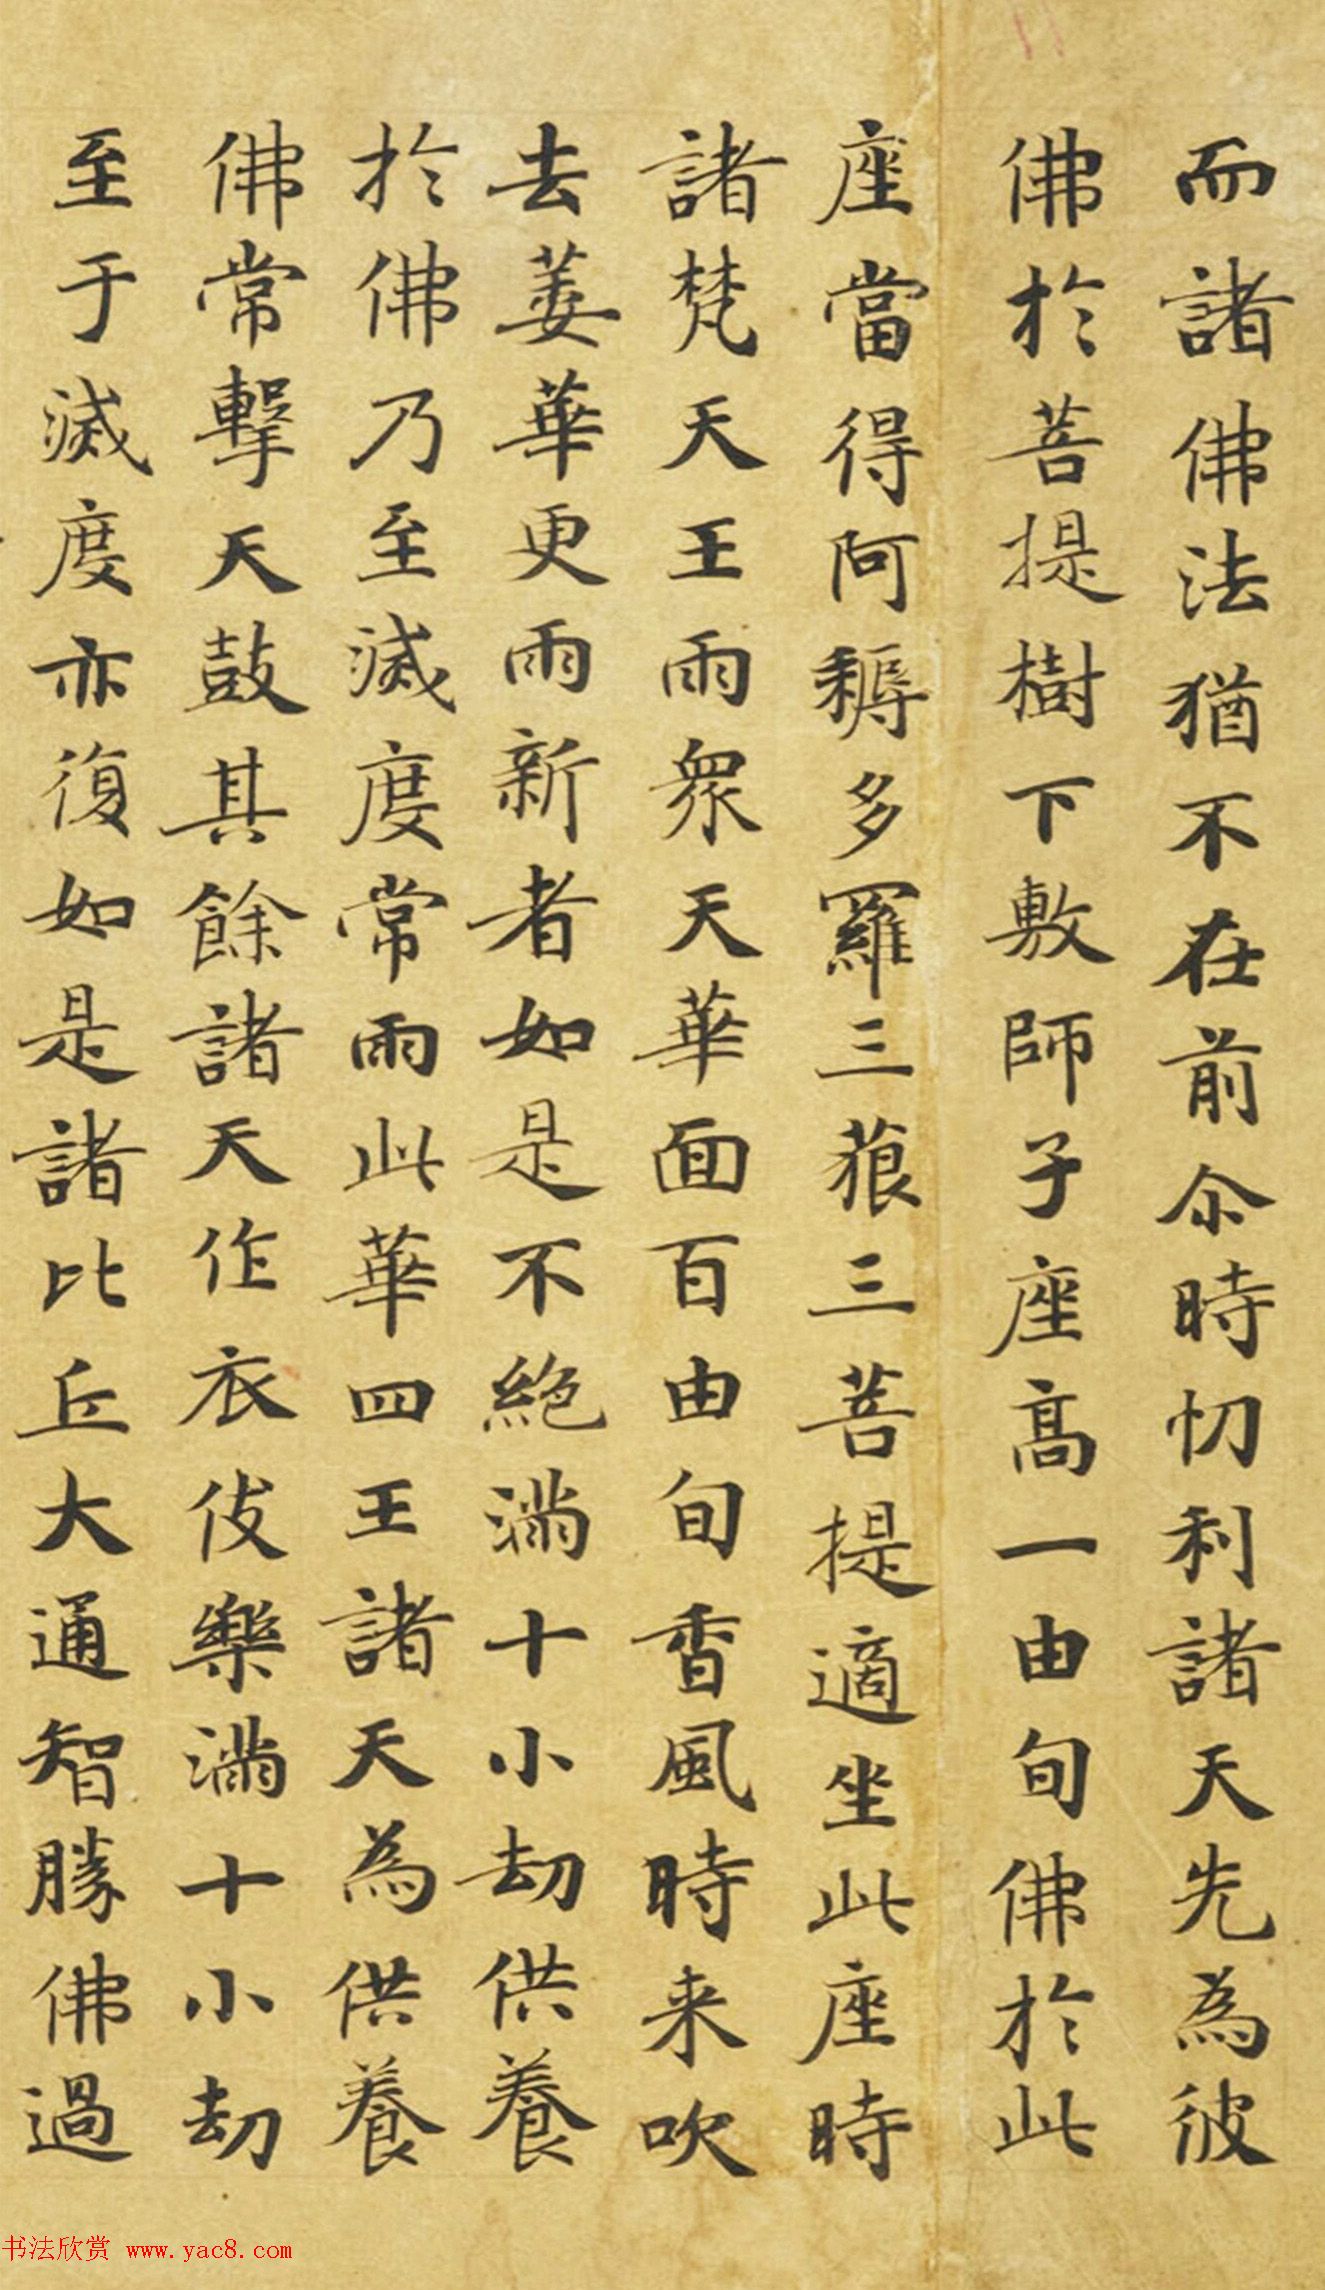 而諸佛法猶不在前尒時忉利諸天先為彼
佛於菩提樹下敷師子座高一由旬佛於此
座當得阿耨多羅三藐三菩提適坐此座時
諸梵天王雨衆天華面百由旬香風時来吹
去萎華更雨新者如是不絶滿十小劫供養
於佛乃至滅度常雨此華四王諸天為供養
佛常擊天鼓其餘諸天作衣伎樂滿十小劫
至于滅度亦復如是諸比丘大通智勝佛過
书法欣赏 www.yac8.com